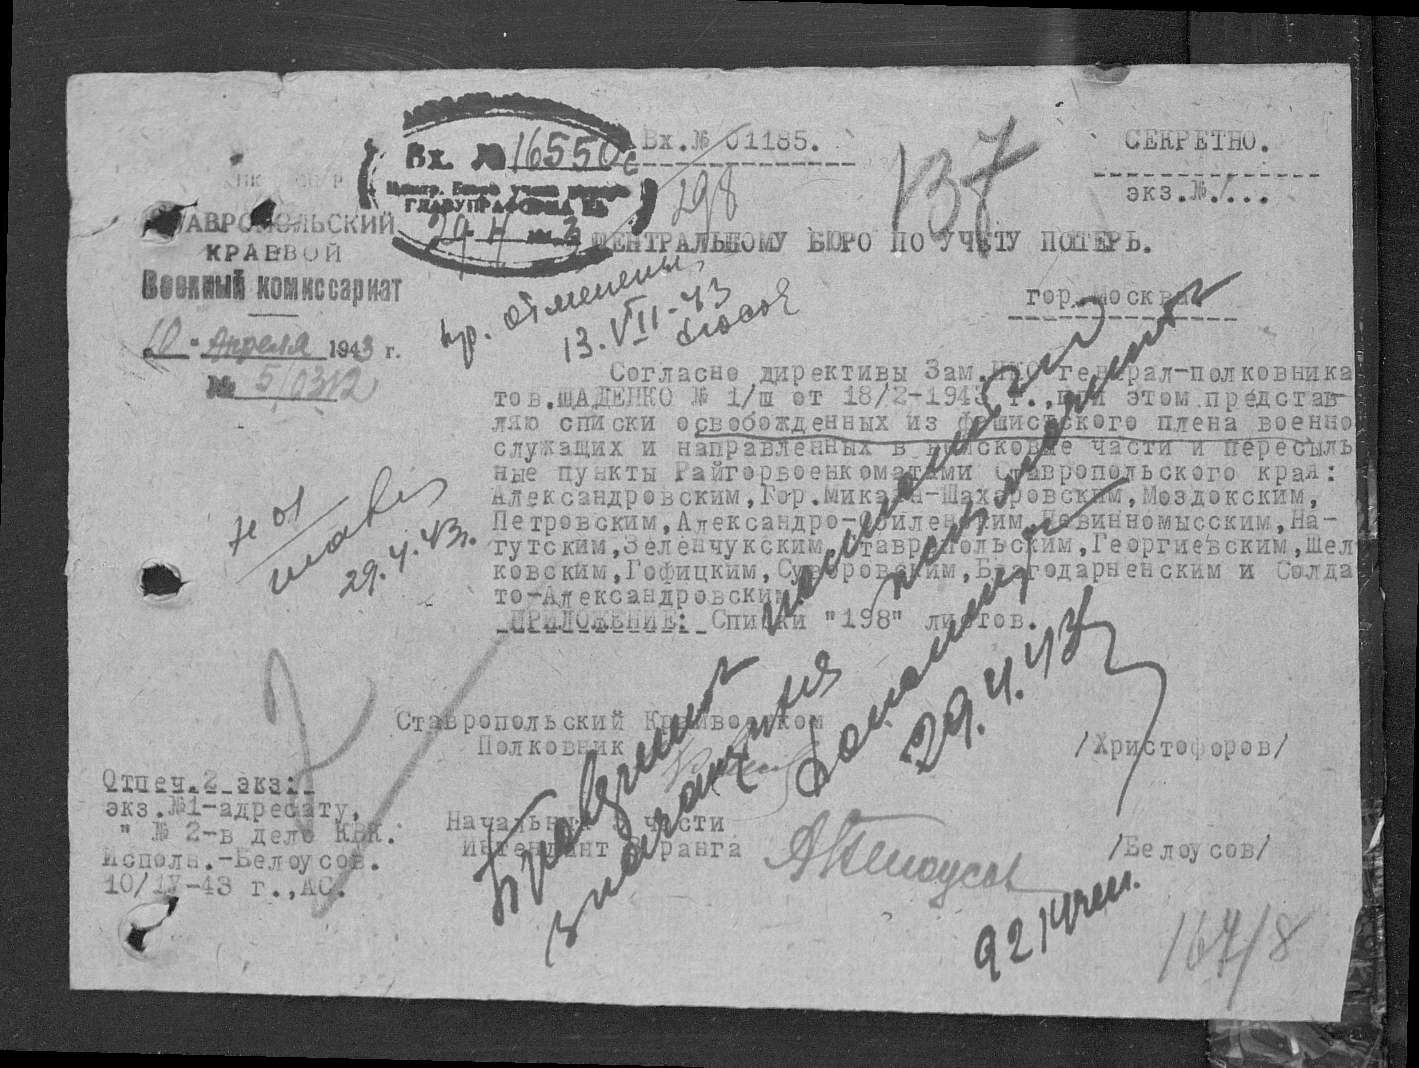 Вх. № 16550с
Центр. Бюро учета потерь
29 4 1943
Вх.№ 01185.
298
137
СЕКРЕТНО.
экз.№.1...
СТАВРОПОЛЬСКИЙ
КРАЕВОЙ
Военный комиссариат
10 - Апреля 1943 г.
№ 5/0312
ЦЕНТРАЛЬНОМУ БЮРО ПО УЧЕТУ ПОТЕРЬ.
гор.Москва
кр. отменены
13.VII-43
Согласно директивы Зам.НКО генерал-полковника
тов.ЩАДЕНКО № 1/ш от 18/2-1943 г.,при этом представ-
ляю списки освобожденных из фашистского плена военно
служащих и направленных в войсковые части и пересыль
ные пункты Райгорвоенкоматами Ставропольского края:
Александровским,Гор.Микоян-Шахаровским,Моздокским,
Петровским,Александро-Обиленским,Невинномысским,На-
гутским,Зеленчукским,Ставропольским,Георгиевским,Шел
ковским,Гофицким,Суворовским,Благодарненским и Солда
то-Александровским
ПРИЛОЖЕНИЕ: Списки "198" листов.
29.4.43г.
29.4.43
Ставропольский Крайвоенком
Полковник /Христофоров/
Отпеч.2 экз:
экз.№1-адресату,
" № 2-в дело КВК.
Исполн.-Белоусов.
10/IV-43 г.,АС.
Начальник части
Интендант ранга /Белоусов/
АБелоусов
921 чел.
167/8